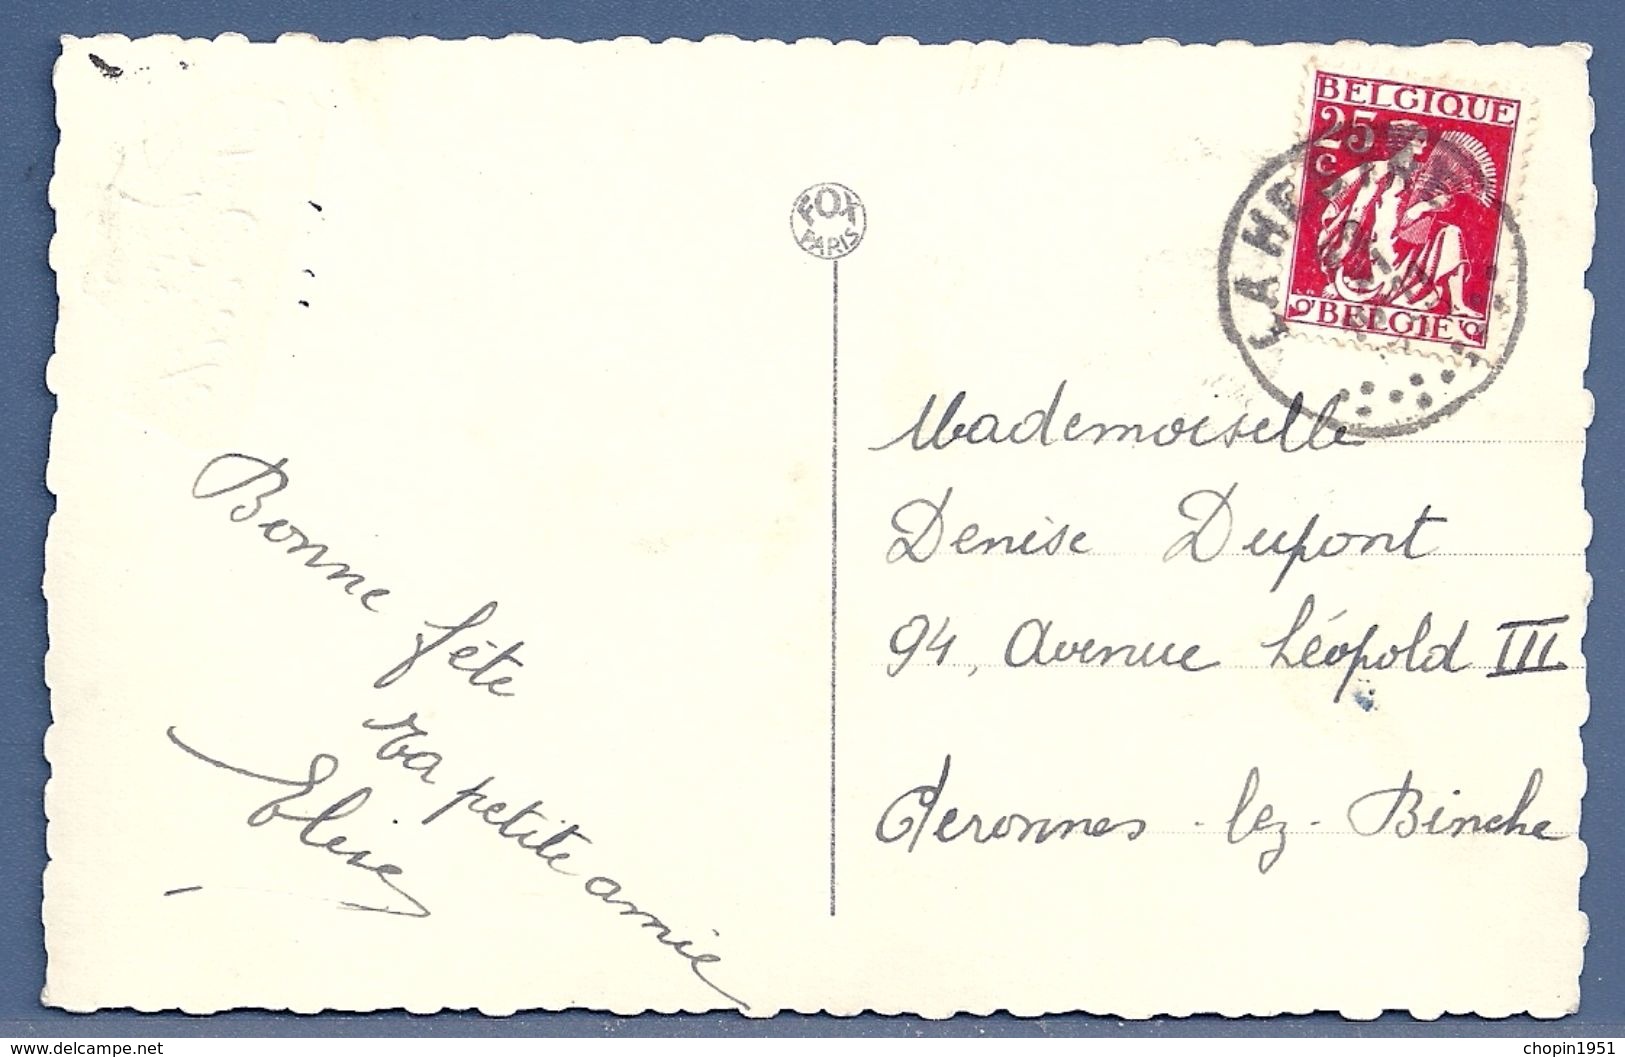 FOX
PARIS
BELGIQUE
25
c
BELGIE
LA HESTRE
Bonne fête
Ta petite amie
Elise
Mademoiselle
Denise Dupont
94, Avenue Léopold III
Péronnes-lez-Binche
delcampe.net
chopin1951